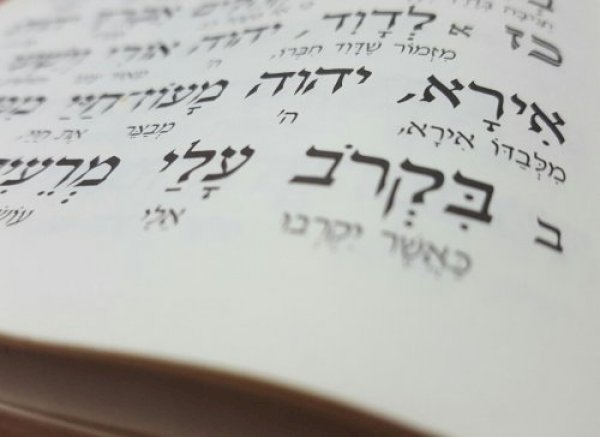 כז א לְדָוִד, יהוה אוֹרִי
מִזְמוֹר שֶׁדָּוִד חִבְּרוֹ, ה'
אִירָא, יהוה מָעוֹז־חַיַּי
מִלְּבַדּוֹ אִירָא, ה' מִבְצַר אֶת חַיַּי
ב בִּקְרֹב עָלַי
כַּאֲשֶׁר יִקְרְבוּ אֵלַי